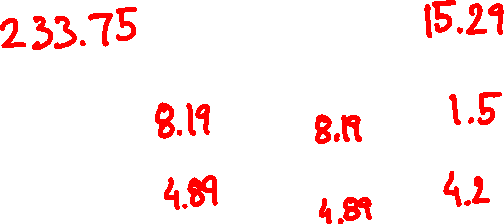 233.75 15.29
8.19 8.19 1.5
4.89 4.89 4.2